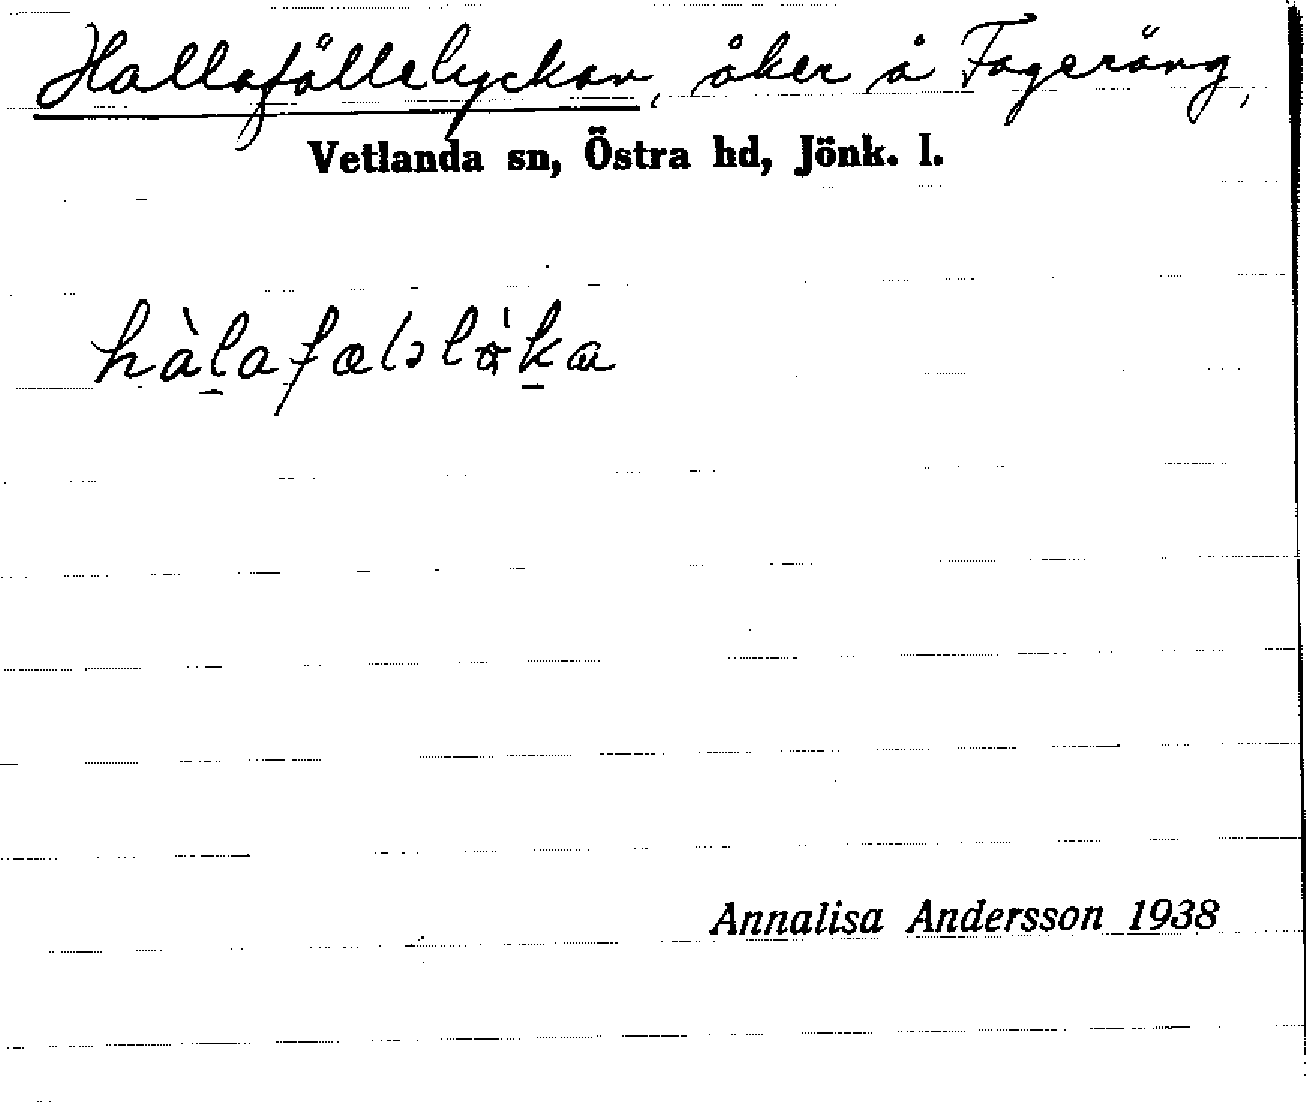 Hallafällelyckan, åker å Fageräng,
Vetlanda sn, Östra hd, Jönk. l.
Annalisa Andersson 1938